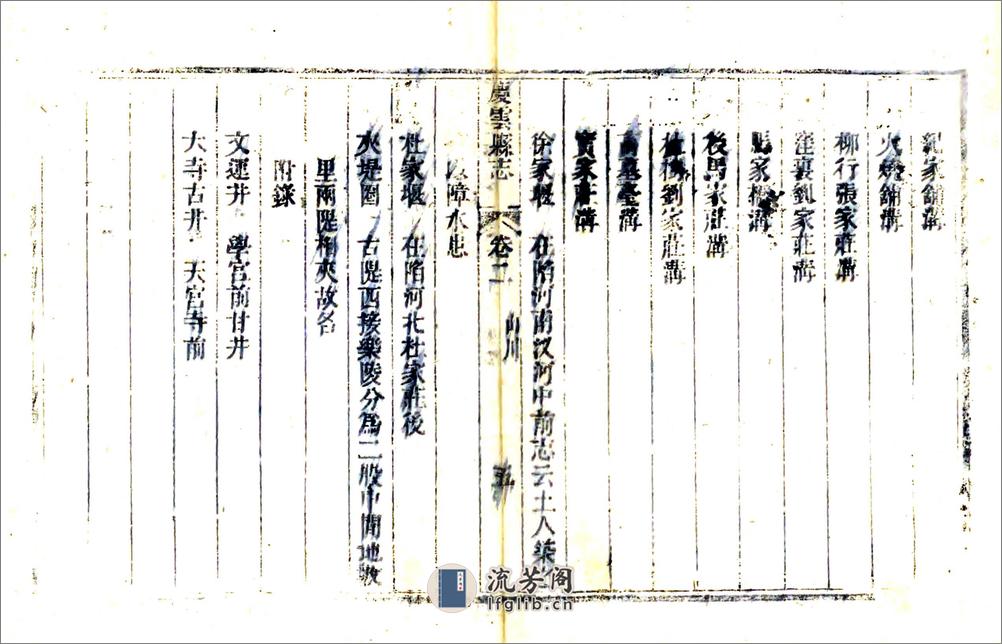 紀家舖溝
火燒舖溝
柳行張家莊溝
窪裏劉家莊溝
馬家橋溝
後馬家莊溝
劉家莊溝
臺溝
賈家莊溝
徐家堰 在陷河南汊河中前志云土人築
慶雲縣志 卷二 山川 五
障水患
杜家堰 在陷河北杜家莊後
夾堤圈 古堤西接樂陵分爲二股中間地數
里兩堤相夾故名
附錄
文運井 學宮前甘井
大寺古井 天宮寺前
流芳阁
lfglib.cn